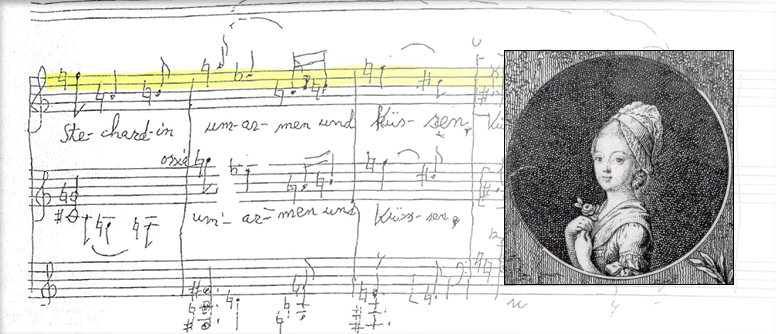 Ste-chard-in um-ar-men und küs-sen,
ossia
um-ar-men und küs-sen,